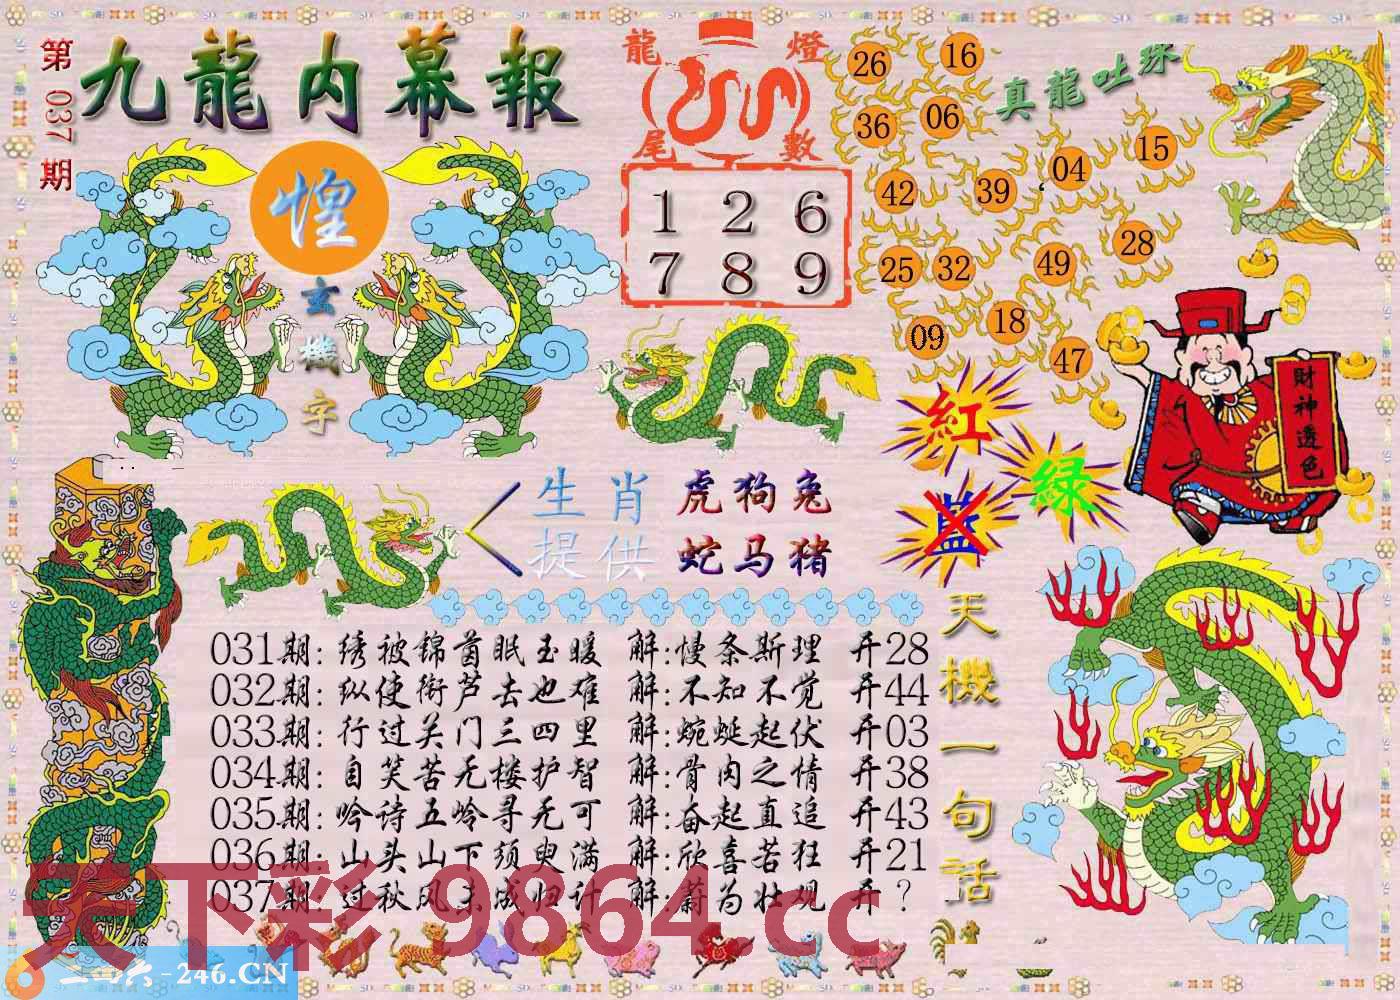 第037期
九龍内幕報
龍燈
尾數
1 2 6
7 8 9
真龍吐珠
26 16
36 06
15
04
42 39
28
25 32 49
09 18
47
煌
玄機字
財神透色
紅
绿
蓝
生肖 虎狗兔
提供 蛇马猪
天機一句話
031期:绣被锦茵眠玉暖 解:慢条斯理 开28
032期:纵使衔芦去也难 解:不知不觉 开44
033期:行过关门三四里 解:蜿蜒起伏 开03
034期:自笑苦无楼护智 解:骨肉之情 开38
035期:吟诗五岭寻无可 解:奋起直追 开43
036期:山头山下须臾满 解:欣喜若狂 开21
037期:过秋风未成归计 解:蔚为壮观 开?
天下彩 9864.cc
二四六-246.CN